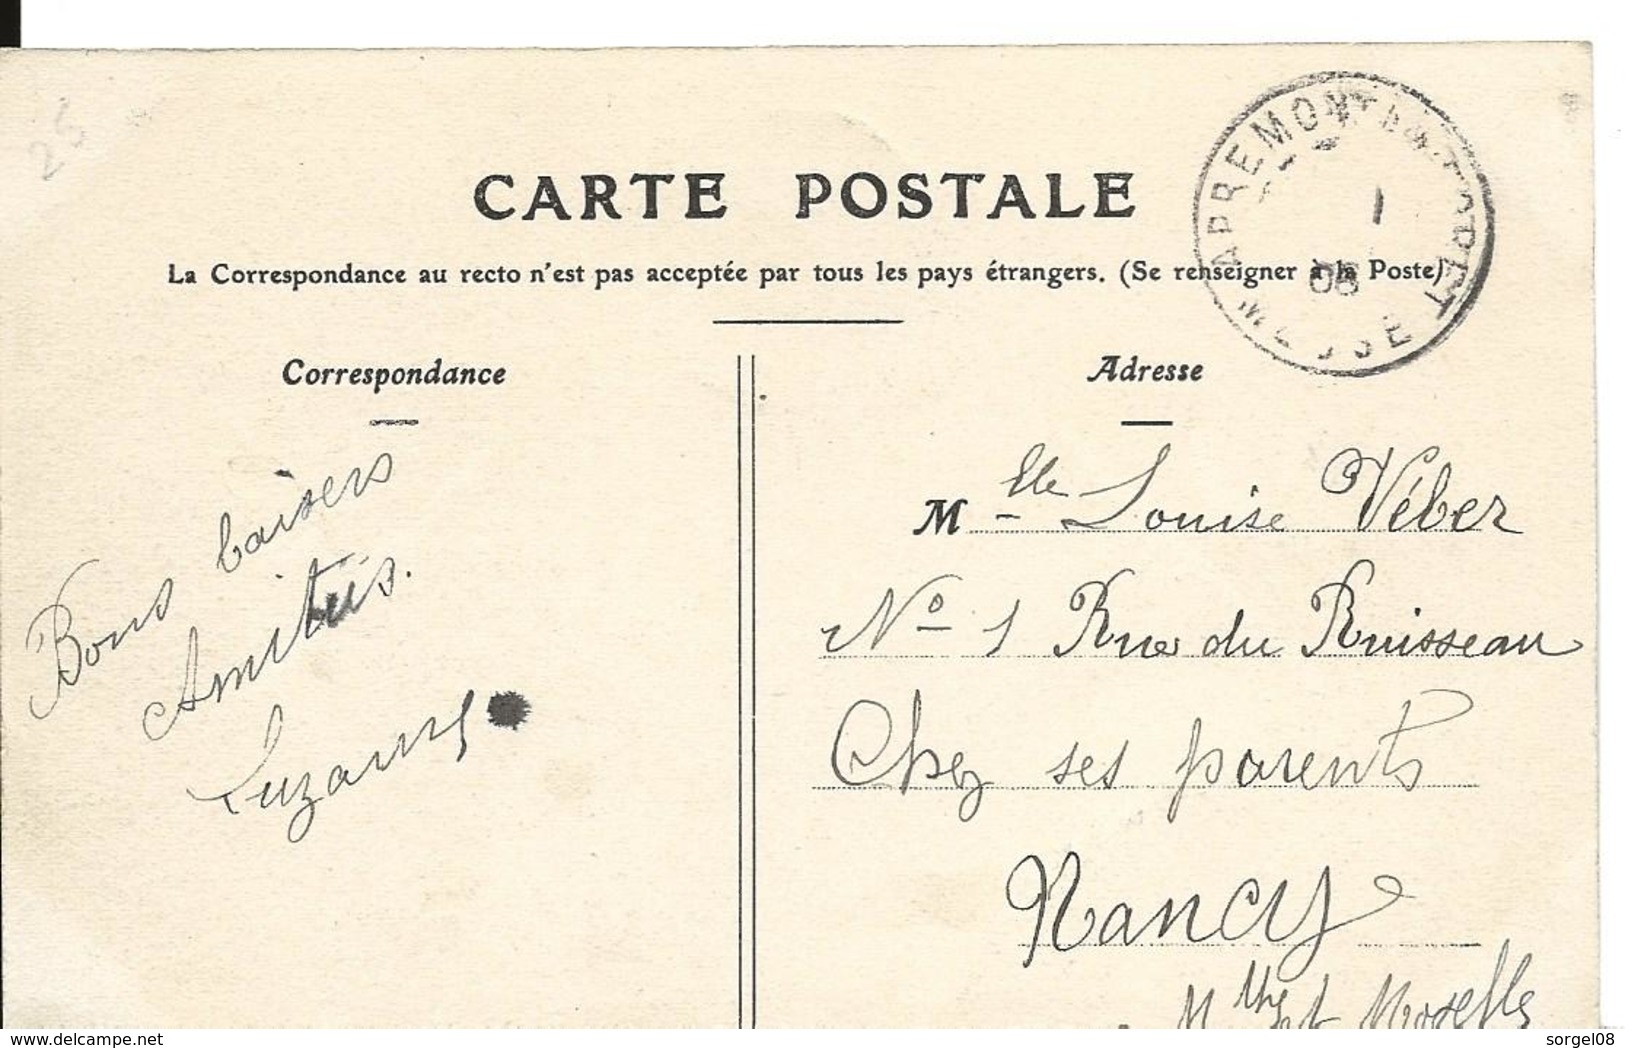 25
CARTE POSTALE
La Correspondance au recto n'est pas acceptée par tous les pays étrangers. (Se renseigner à la Poste)
APREMONT LA FORET
1
08
MEUSE
Correspondance
Bons baisers
Amitiés.
Suzanne
Adresse
Mlle Louise Véber
No 1 Rue du Ruisseau
Chez ses parents
Nancy
Mthe et Moselle
sorgel08